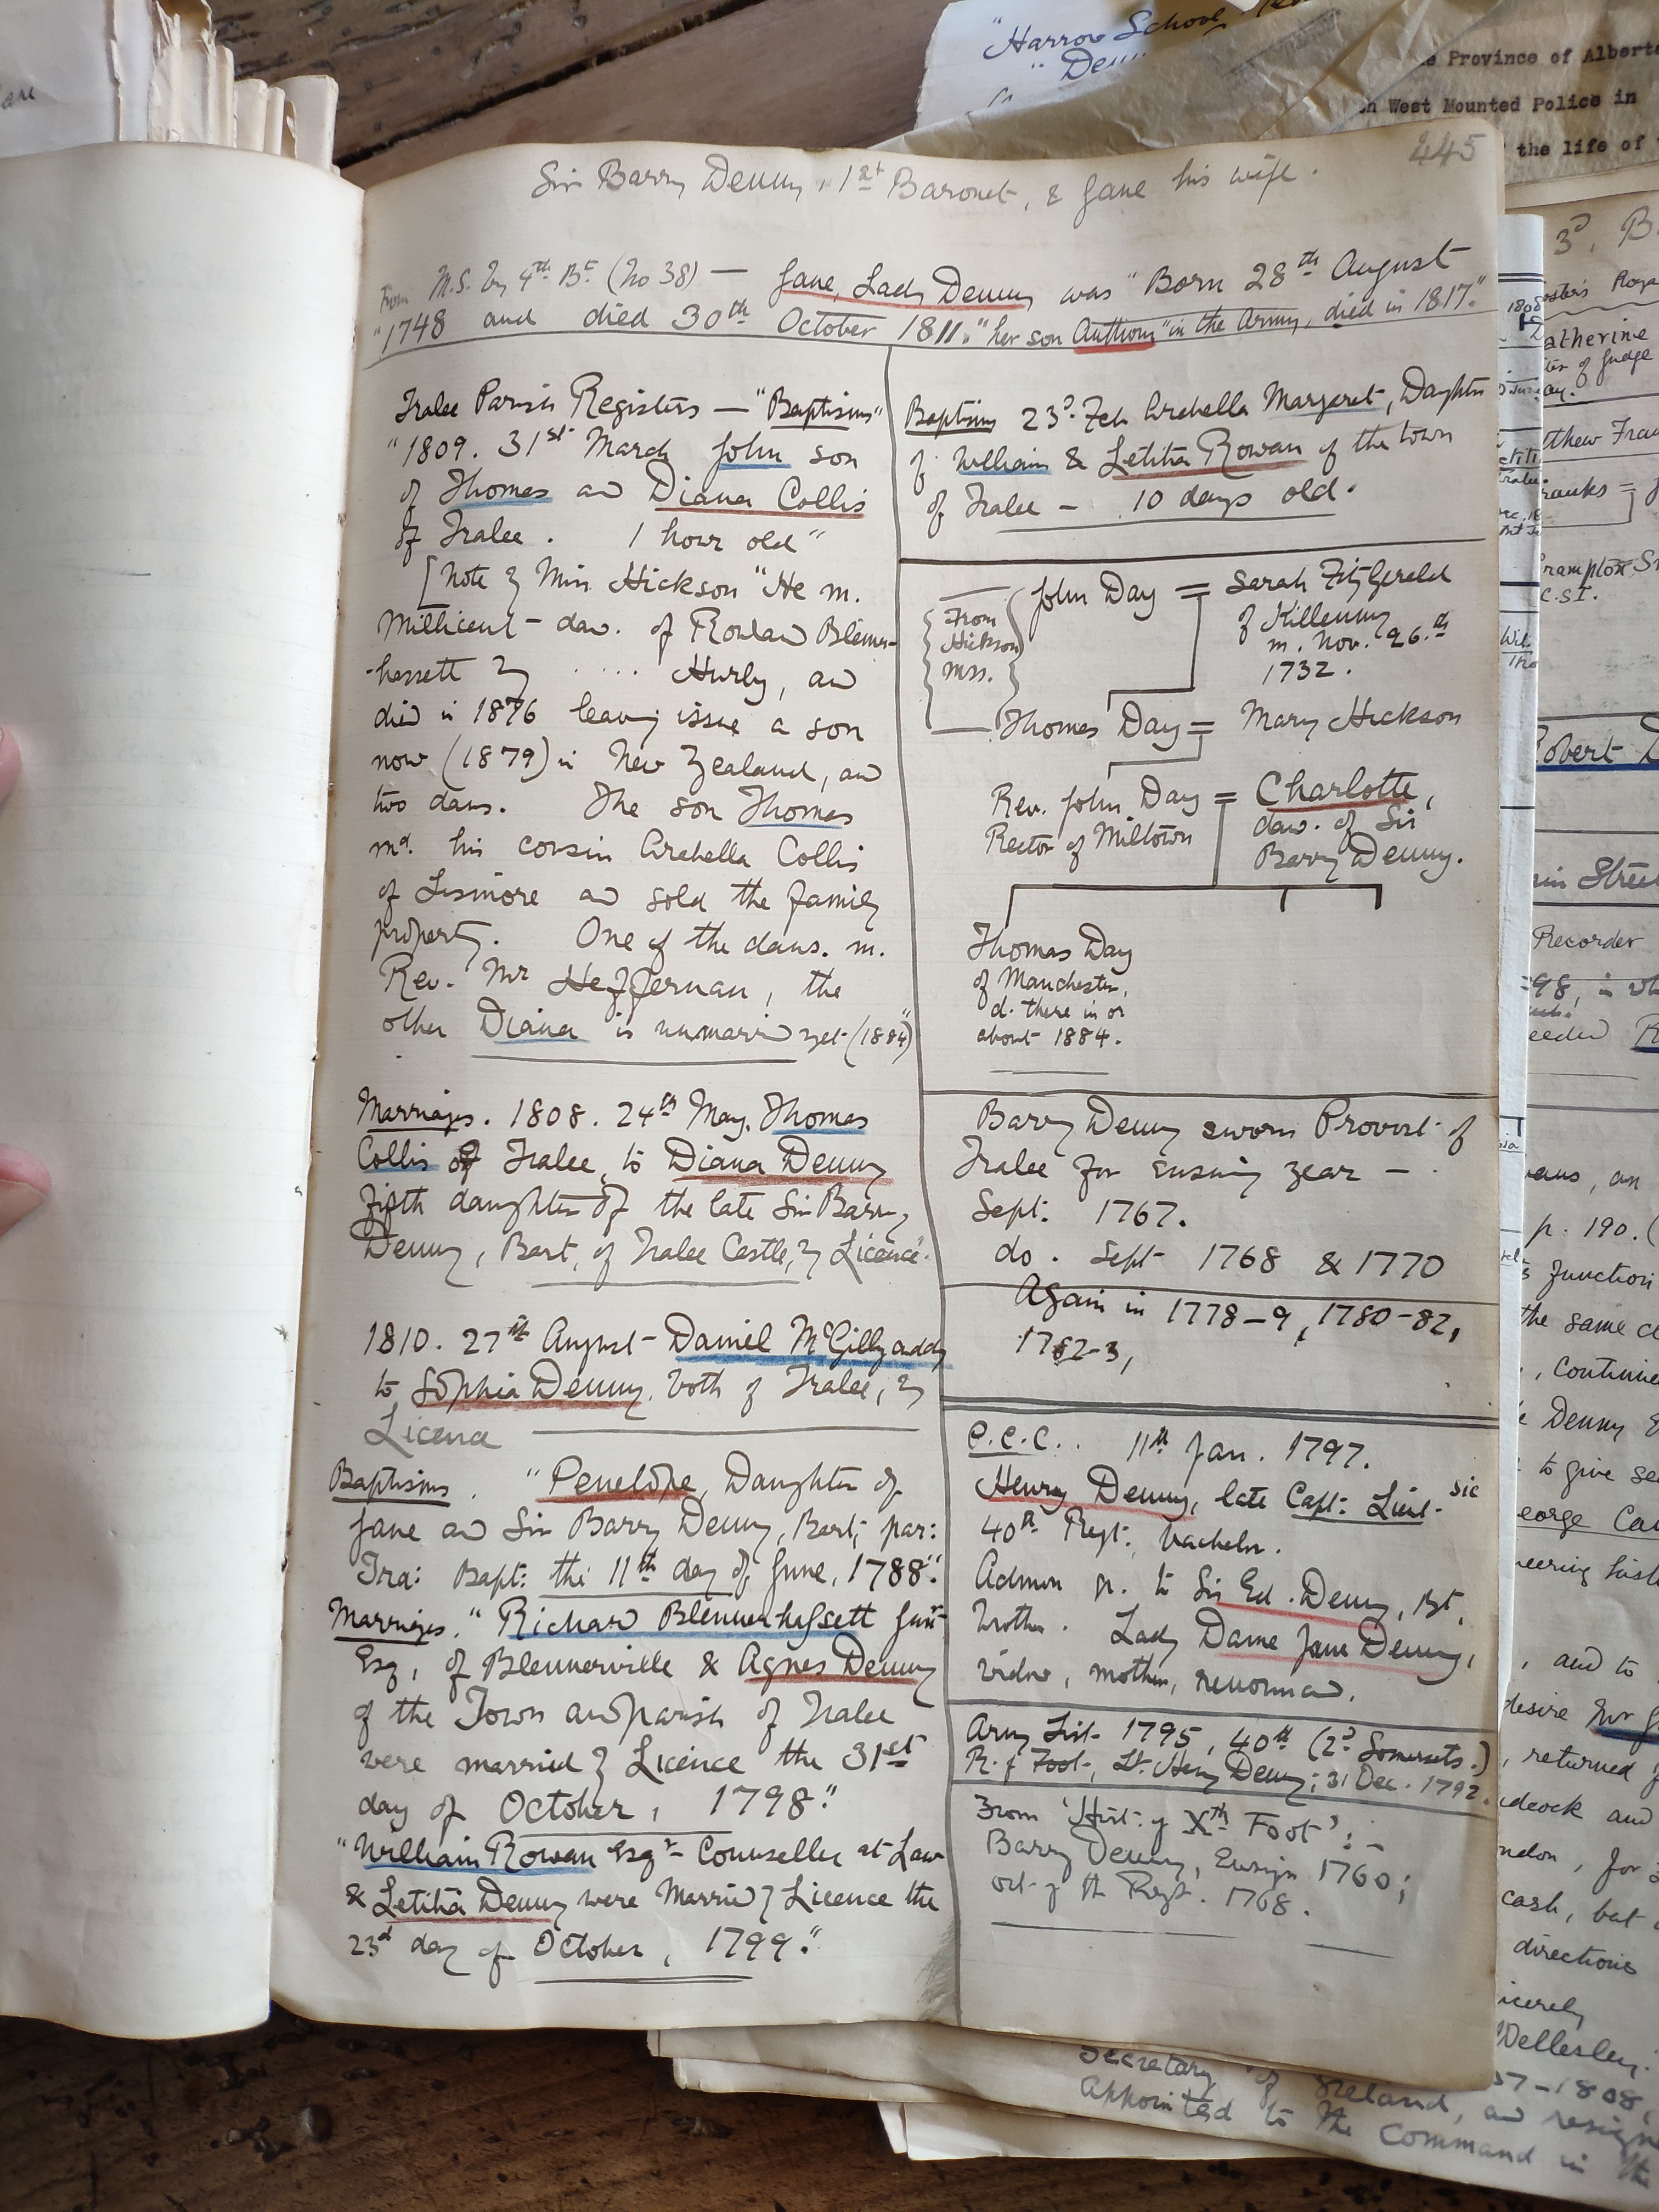 445
Sir Barry Denny, 1st Baronet, & Jane his wife.
From M.S. by 4th Bt (No 38) — Jane, Lady Denny was "Born 28th August
"1748 and died 30th October 1811." "her son Anthony "in the Army, died in 1817."
Tralee Parish Registers — "Baptisms"
"1809. 31st March John son
of Thomas and Diana Collis
of Tralee. 1 hour old"
[Note by Miss Hickson "He m.
Millicent – dau. of Rowland Blenner-
hassett by .... Hurly, and
died in 1876 leaving issue a son
now (1879) in New Zealand, and
two daus. The son Thomas
md. his cousin Arabella Collis
of Lismore and sold the family
property. One of the daus. m.
Rev. Mr Heffernan, the
other Diana is unmarried yet (1884)"
Marriages. 1808. 24th May. Thomas
Collis of Tralee, to Diana Denny
fifth daughter of the late Sir Barry
Denny, Bart, of Tralee Castle, by Licence".
1810. 27th August – Daniel McGillycuddy
to Sophia Denny, both of Tralee, by
Licence
Baptisms. "Penelope, Daughter of
Jane and Sir Barry Denny, Bart; par:
Tra: Bapt: the 11th day of June, 1788".
Marriages. "Richard Blennerhassett Junr
Esq, of Blennerville & Agnes Denny
of the Town and parish of Tralee
were married by Licence the 31st
day of October, 1798".
"William Rowan Esqr Counseller at Law
& Letitia Denny were Married by Licence the
23d day of October, 1799."
Baptism 23d. Feb Arabella Margaret, Daughter
of William & Letitia Rowan of the town
of Tralee – 10 days old.
From
Hickson
mss.
John Day = Sarah FitzGerald
of Killenny
m. Nov. 26th
1732.
Thomas Day = Mary Hickson
Rev. John Day = Charlotte,
Rector of Miltown
dau. of Sir
Barry Denny.
Thomas Day
of Manchester,
d. there in or
about 1884.
Barry Denny sworn Provost of
Tralee for ensuing year –
Sept: 1767.
do. Sept 1768 & 1770
Again in 1778–9, 1780–82,
1782–3,
P.C.C. 11th Jan. 1797.
Henry Denny, late Capt: Lieut- sic
40th Regt:, bachelor.
Admon gr. to Sir Ed. Denny, Bt,
brother. Lady Dame Jane Denny,
widow, mother, renounced.
Army List 1795, 40th (2d Somersets.)
R. of Foot, Lt. Henry Denny; 31 Dec. 1792.
From 'Hist: of Xth Foot': –
Barry Denny, Ensign 1760;
out of the Regt. 1768.
"Harrow School
"Den
Province of Albert
West Mounted Police in
the life of
3d, B
Roya
atherine
of Judge
tthew Fra
ranks =
rampton
C.S.I.
Robert D
Stree
Recorder
p. 190. (
Junction
the same
, continue
Denny
to give se
eorge
, and to
desire
, returned
cash, but
directions
Wellesley.
37–1808,
Secretary of Ireland, and resign
Appointed to the Command in the